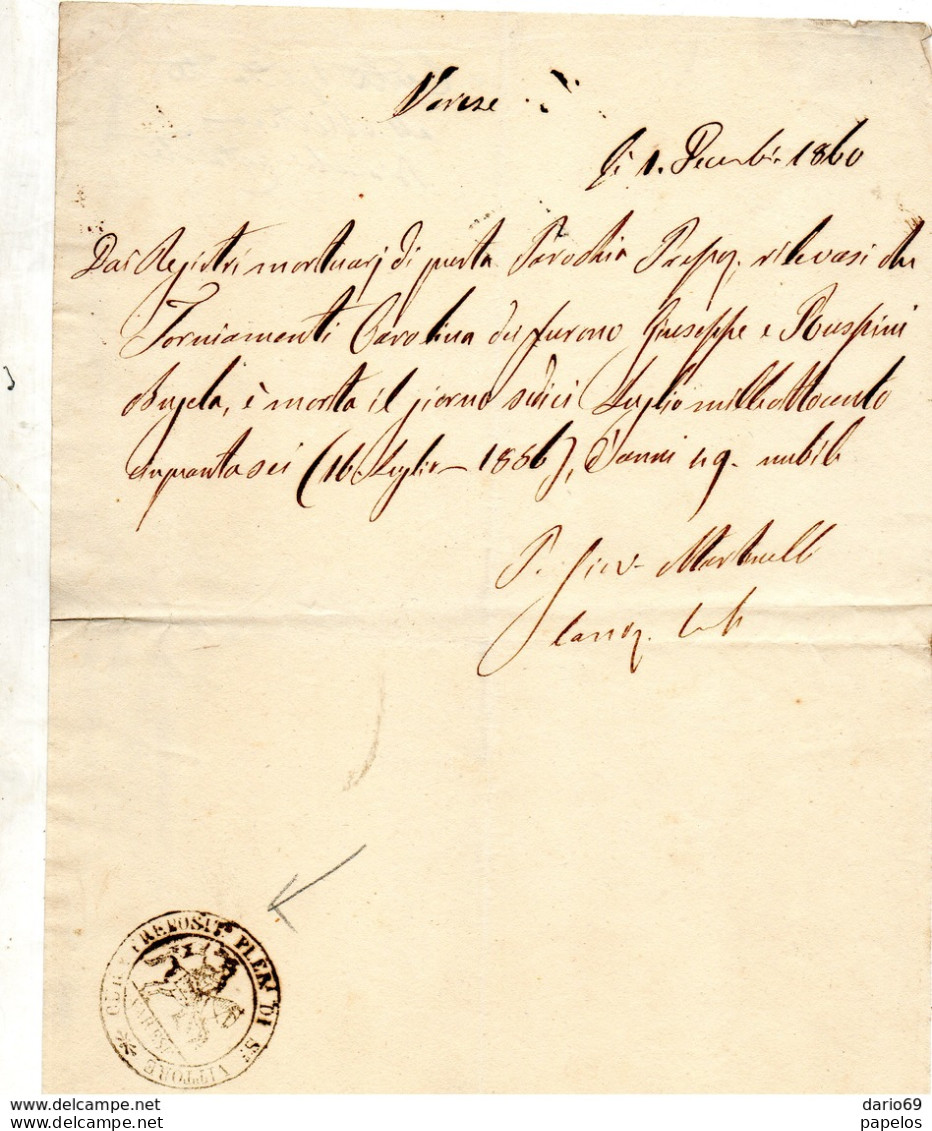 Varese
li 1. Decembr. 1860
Dai Registri mortuarj di questa Parochia Prepos. rilevasi che
Torniamenti Carolina dei furono Giuseppe e Ruspini
Angela, è morta il giorno sedici Luglio mille ottocento
cinquanta sei (16. Luglio 1856), d'anni 49. nubile
P. Giov. Martinelli
Canon.
CURA PREPOSITE PLEB. DI S. VITTORE
VARESE
dario69
papelos